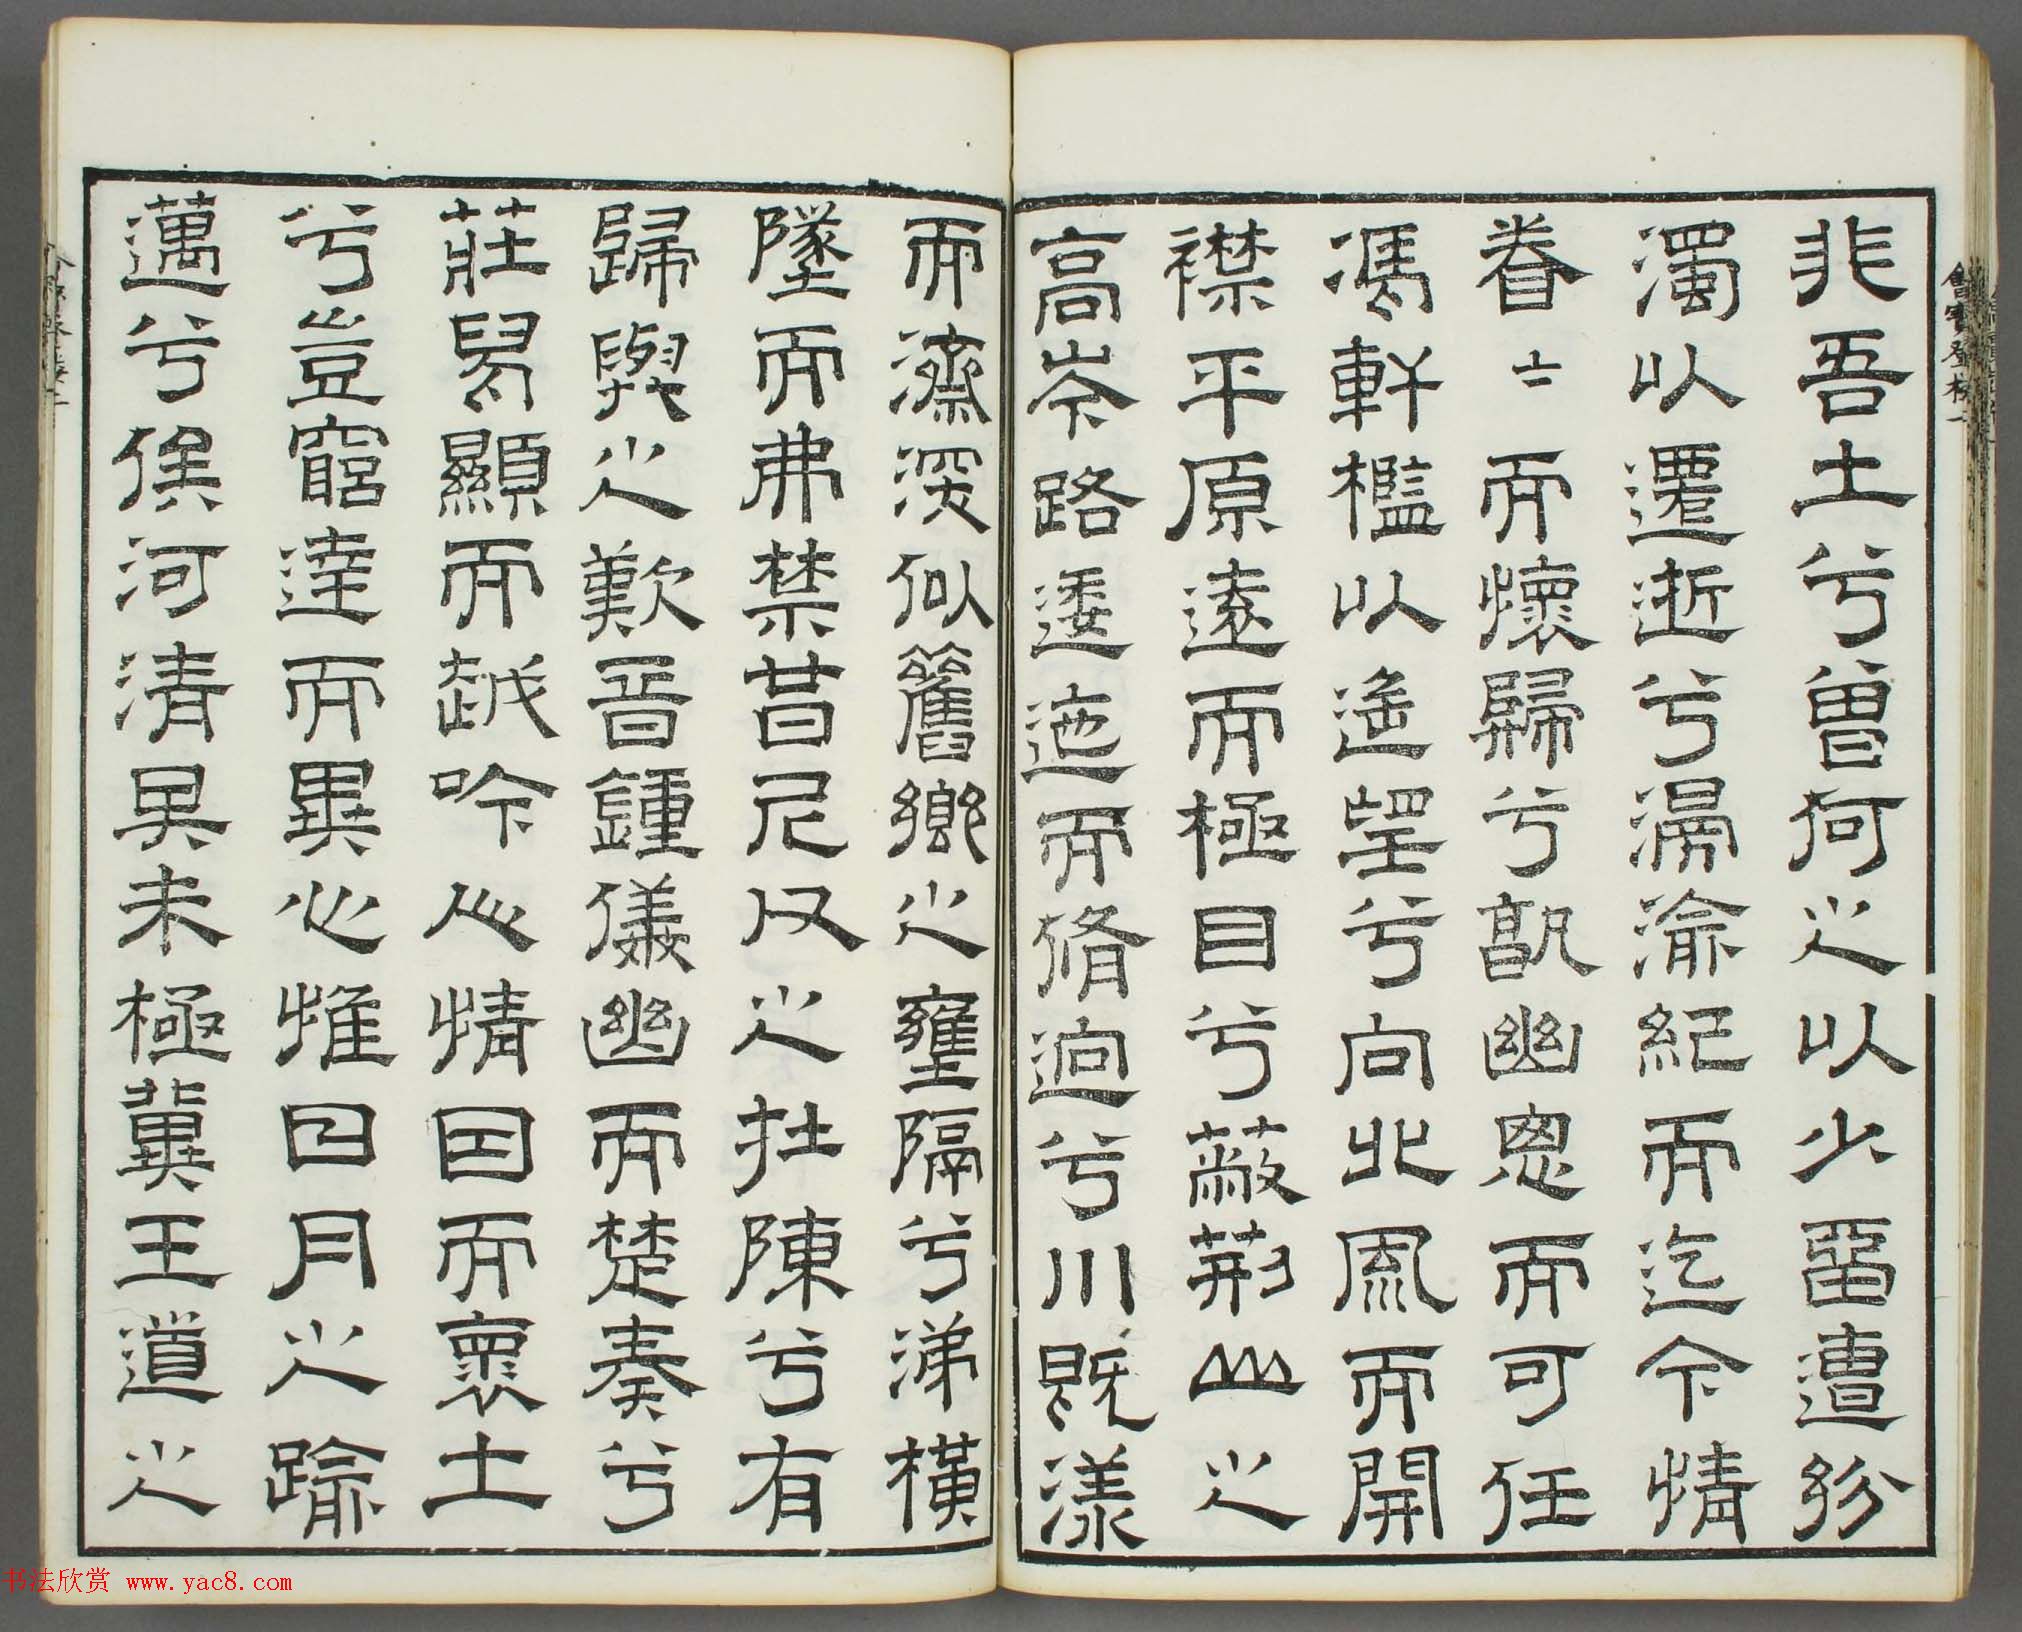 非吾土兮曾何之以少留遭紛
濁以遷逝兮漏渝紀而迄今情
眷二二而懷歸兮孰幽思而可任
馮軒檻以遙望兮向北風而開
襟平原遠而極目兮蔽荊山之
高岑路逶迤而脩迥兮川既漾
而濟深似舊鄉之壅隔兮涕橫
墜而弗禁昔尼父之在陳兮有
歸與之歎音鍾儀幽而楚奏兮
莊舄顯而越吟人情同而褱土
兮豈窮達而異心惟日月之踰
邁兮俟河清其未極冀王道之
書法欣赏 www.yac8.com